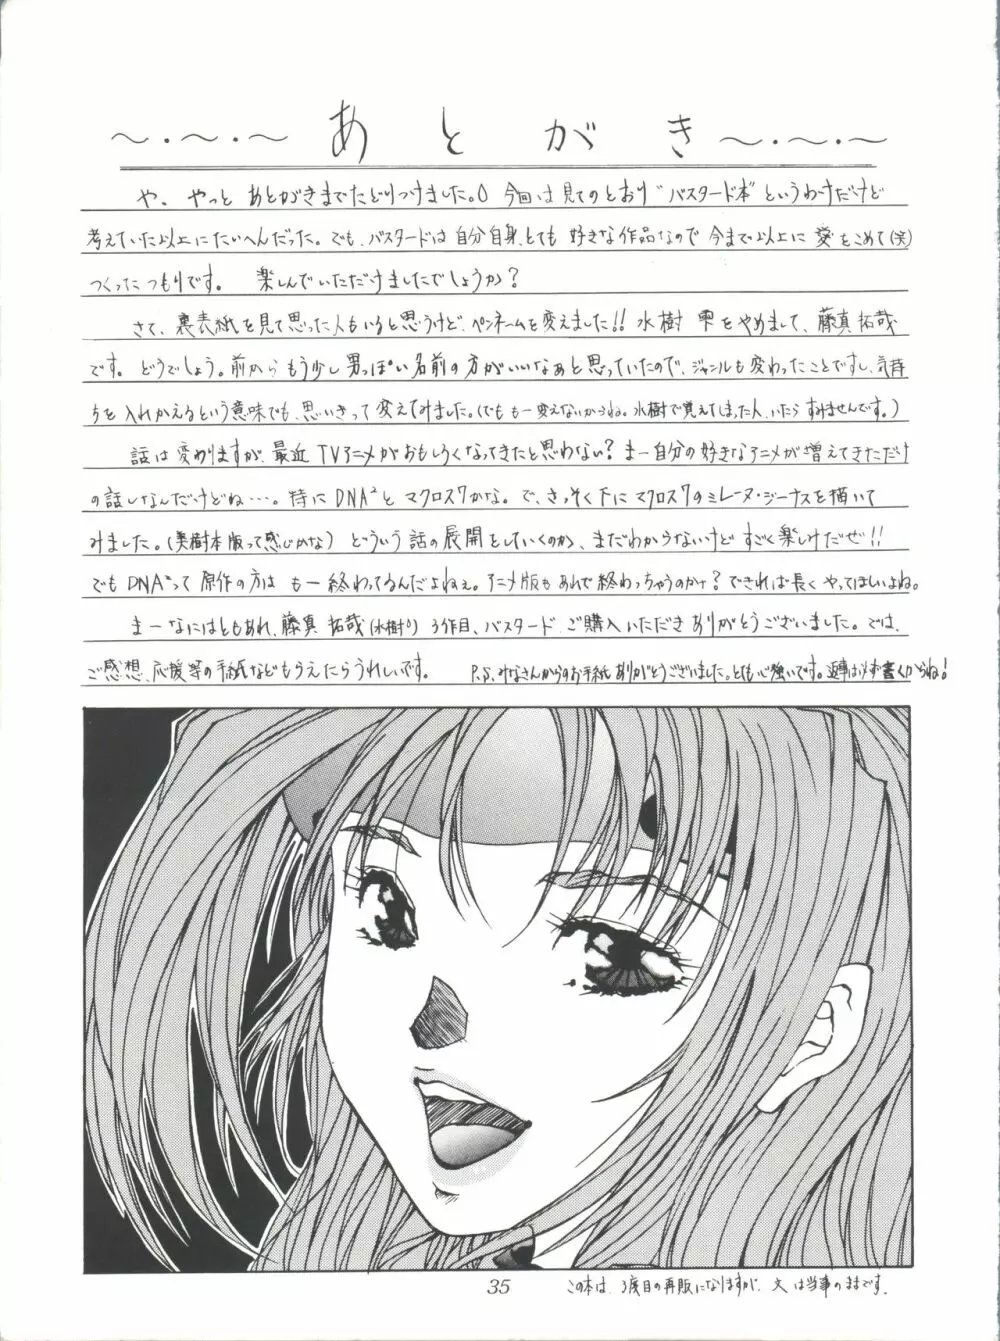 ～・～・～ あとがき ～・～・～
や、やっと あとがきまでたどりつけました。今回は見てのとおり“バスタード本”というわけだけど
考えていた以上にたいへんだった。でも、バスタードは自分自身、とても 好きな作品なので 今まで以上に 愛をこめて(笑)
つくったつもりです。 楽しんでいただけましたでしょうか？
さて、裏表紙を見て思った人もいると思うけど、ペンネームを変えました!! 水樹 雫をやめまして、藤真拓哉
です。どうでしょう。前から もう少し男っぽい名前の方がいいなあと思っていたので、ジャンルも変わったことですし、気持
ちを入れかえるという意味でも、思いきって変えてみました。(でもも一変えないからね。水樹で覚えてしまった人、いたら すみませんです。)
話は変わりますが、最近 TVアニメがおもしろくなってきたと思わない？ まー自分の好きなアニメが増えてきただけ
の話しなんだけどね…。特にDNA²とマクロス7かな。で、さっそく下にマクロス7のミレーヌ・ジーナスを描いて
みました。(美樹本版って感じかな) どういう話の展開をしていくのか、まだわからないけど すごく楽しみだぜ!!
でもDNA²って 原作の方は も一終わってるんだよねぇ。アニメ版もあれで終わっちゃうのかな？できれば長くやってほしいよね。
まーなにはともあれ、藤真 拓哉(水樹) 3作目、バスタード ご購入いただきありがとうございました。では、
ご感想、応援等の手紙などもらえたらうれしいです。 P.S.みなさんからのお手紙 ありがとうございました。とても心強いです。返事は必ず書くからね！
35
この本は、3度目の再販になりますが、文は当事のままです。